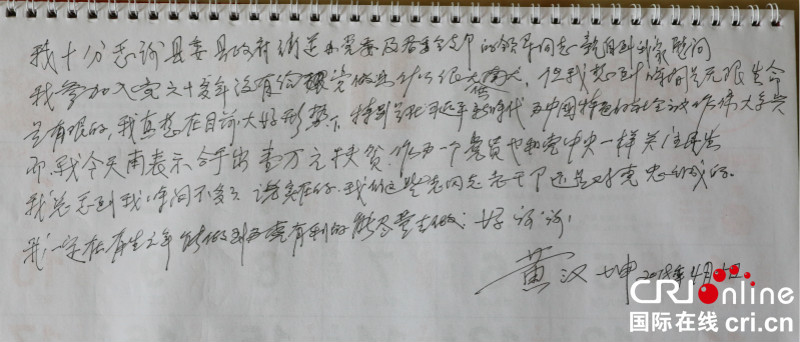 我十分感谢县委县政府街道办党委及各支部的领导同志亲自到家慰问
我参加入党六十多年没有给党做出什么很大贡大，但我想到时间是无限生命
是有限的，我真想在目前大好形势下，特别是新时代为中国特色的社会主义伟大
我今天表示今年出壹万元扶贫，作为一个党员也和党中央一样关注民生
我总感到我时间不多了，说实在的，我们这些老同志老干下还是对党忠诚的。
我一定在有生之年能做到对党有利的能尽量去做。好 谢谢！
黄汉坤 2018年4月
CRIonline
国际在线 cri.cn